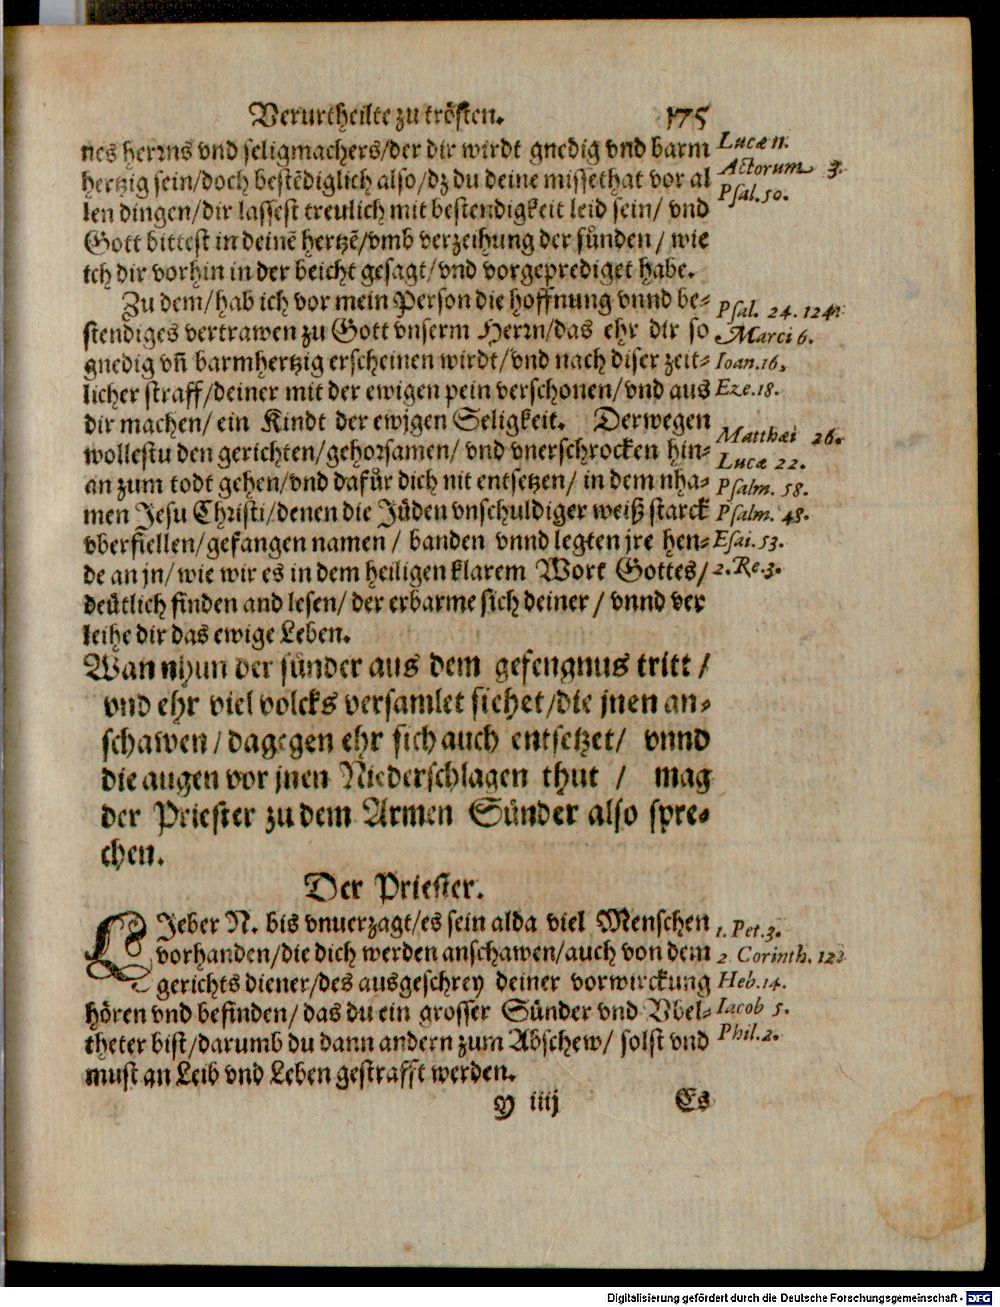 Verurtheilte zu trösten. 175
nes herrns vnd seligmachers/der dir wirdt gnedig vnd barm
hertzig sein/doch bestēdiglich also/dz du deine missethat vor al
len dingen/dir lassest treulich mit bestendigkeit leid sein/ vnd
Gott bittest in deinē hertzē/vmb verzeihung der sünden/ wie
ich dir vorhin in der beicht gesagt/vnd vorgeprediget habe.
Zu dem/hab ich vor mein Person die hoffnung vnnd be-
stendiges vertrawen zu Gott vnserm Herrn/das ehr dir so
gnedig vñ barmhertzig erscheinen wirdt/vnd nach diser zeit-
licher straff/deiner mit der ewigen pein verschonen/vnd aus
dir machen/ ein Kindt der ewjgen Seligkeit. Derwegen
wollestu den gerichten/gehorsamen/ vnd vnerschrocken hin-
an zum todt gehen/vnd dafür dich nit entsetzen/ in dem nha-
men Jesu Christi/denen die Jüden vnschuldiger weiß starck
vberfiellen/gefangen namen/ banden vnnd legten jre hen-
de an jn/wie wir es in dem heiligen klarem Wort Gottes/
deütlich finden and lesen/ der erbarme sich deiner/ vnnd ver
leihe dir das ewige Leben.
Wan nhun der sünder aus dem gefengnus tritt/
vnd ehr viel volcks versamlet sichet/die jnen an-
schawen/dagegen ehr sich auch entsetzet/ vnnd
die augen vor jnen Niederschlagen thut/ mag
der Priester zu dem Armen Sünder also spre-
chen.
Der Priester.
LJeber N. bis vnuerzagt/es sein alda viel Menschen
vorhanden/die dich werden anschawen/auch von dem
gerichts diener/des ausgeschrey deiner vorwirckung
hören vnd befinden/das du ein grosser Sünder vnd Vbel-
theter bist/darumb du dann andern zum Abschew/ solst vnd
must an Leib vnd Leben gestrafft werden.
Y iiij Es
Lucæ 11.
Actorum 3.
Psal. 50.
Psal. 24. 124.
Marci 6.
Ioan. 16.
Eze. 18.
Matthæi 26.
Lucæ 22.
Psalm. 58.
Psalm. 48.
Esai. 53.
2. Re. 3.
1. Pet. 3.
2 Corinth. 12
Heb. 14.
Iacob 5.
Phil. 2.
Digitalisierung gefördert durch die Deutsche Forschungsgemeinschaft - DFG